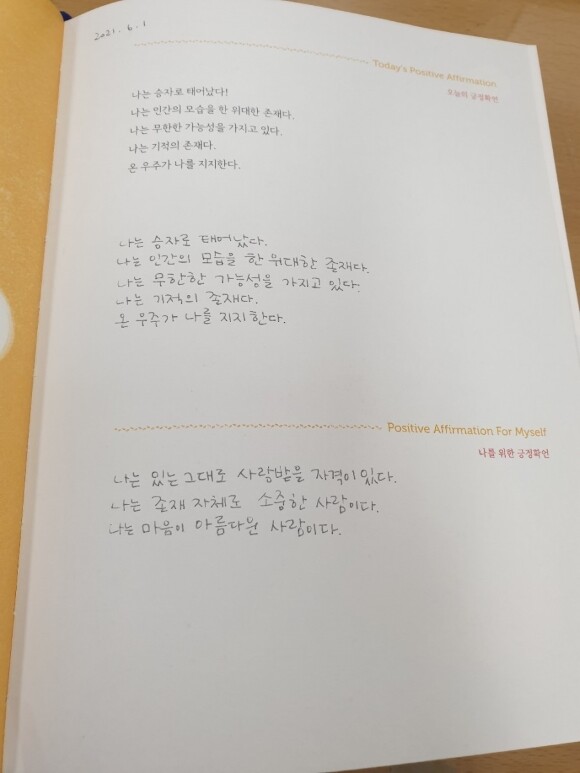 2021. 6. 1
Today's Positive Affirmation
오늘의 긍정확언
나는 승자로 태어났다!
나는 인간의 모습을 한 위대한 존재다.
나는 무한한 가능성을 가지고 있다.
나는 기적의 존재다.
온 우주가 나를 지지한다.
나는 승자로 태어났다.
나는 인간의 모습을 한 위대한 존재다.
나는 무한한 가능성을 가지고 있다.
나는 기적의 존재다.
온 우주가 나를 지지한다.
Positive Affirmation For Myself
나를 위한 긍정확언
나는 있는 그대로 사랑받을 자격이 있다.
나는 존재 자체로 소중한 사람이다.
나는 마음이 아름다운 사람이다.